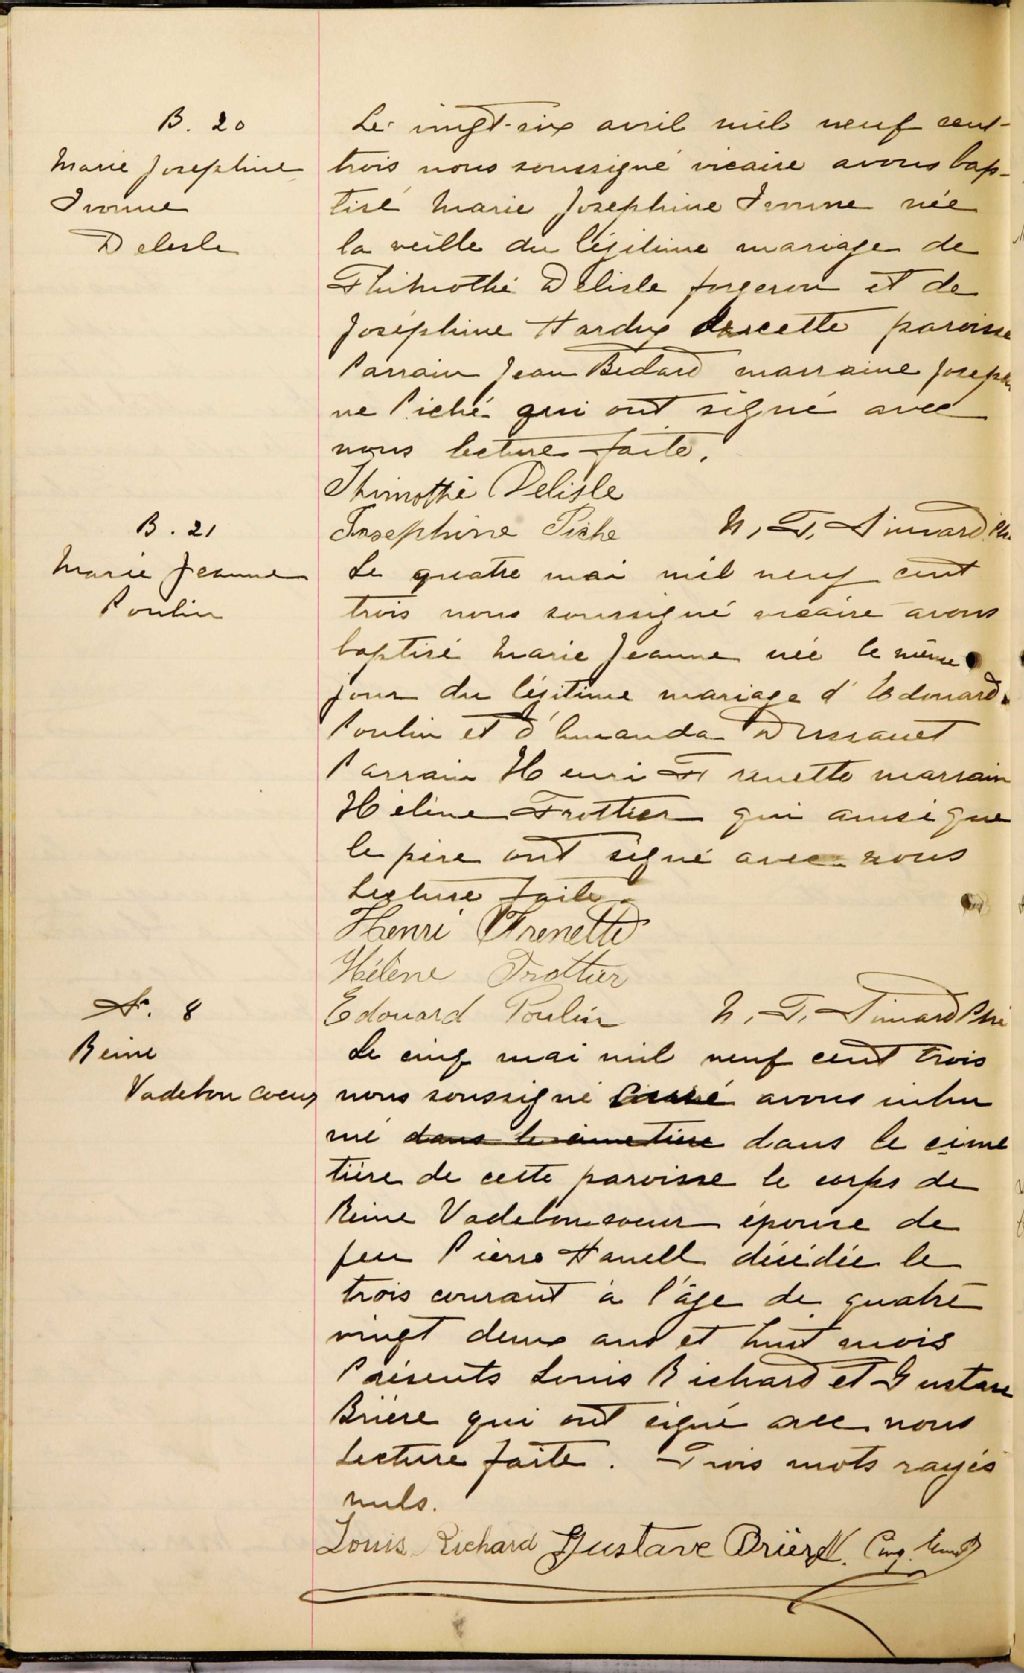 B. 20
Marie Josephine
Ivonne
Delisle
Le vingt-six avril mil neuf cent-
trois nous soussigné vicaire avons bap-
tisé Marie Josephine Ivonne née
la veille du légitime mariage de
Thimothé Delisle forgeron et de
Joséphine Hardy de cette paroisse
Parrain Jean Bedard marraine Josephi
ne Piché qui ont signé avec
nous lecture faite.
Thimothé Delisle
Josephine Piche N. T. Simard Ptre
B. 21
Marie Jeanne
Poulin
Le quatre mai mil neuf cent
trois nous soussigné vicaire avons
baptisé Marie Jeanne née le même
jour du légitime mariage d'Edouard
Poulin et d'Amanda Dussault
Parrain Henri Frenette marrain
Hélène Trottier qui ainsi que
le père ont signé avec nous
Lecture faite.
Henri Frenette
Hélène Trottier
Edouard Poulin N. T. Simard Ptre
S. 8
Reine
Vadeboncoeur
Le cinq mai mil neuf cent trois
nous soussigné curé avons inhu
mé dans le cimetière dans le cime
tière de cette paroisse le corps de
Reine Vadeboncoeur épouse de
feu Pierre Hamell décédée le
trois courant à l'âge de quatre
vingt deux ans et huit mois
Présents Louis Richard et Gustave
Brière qui ont signé avec nous
Lecture faite. Trois mots rayés
nuls.
Louis Richard Gustave Brière